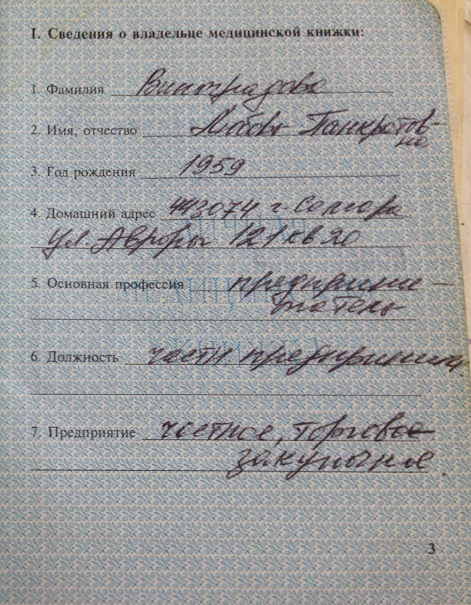 I. Сведения о владельце медицинской книжки:
1. Фамилия Виноградова
2. Имя, отчество Любовь Панкратов-
на
3. Год рождения 1959
4. Домашний адрес 443074 г. Самара
ул. Авроры 121 кв 20
5. Основная профессия предприни-
матель
6. Должность частн. предприним
7. Предприятие частное, торгово-
закупочное
3